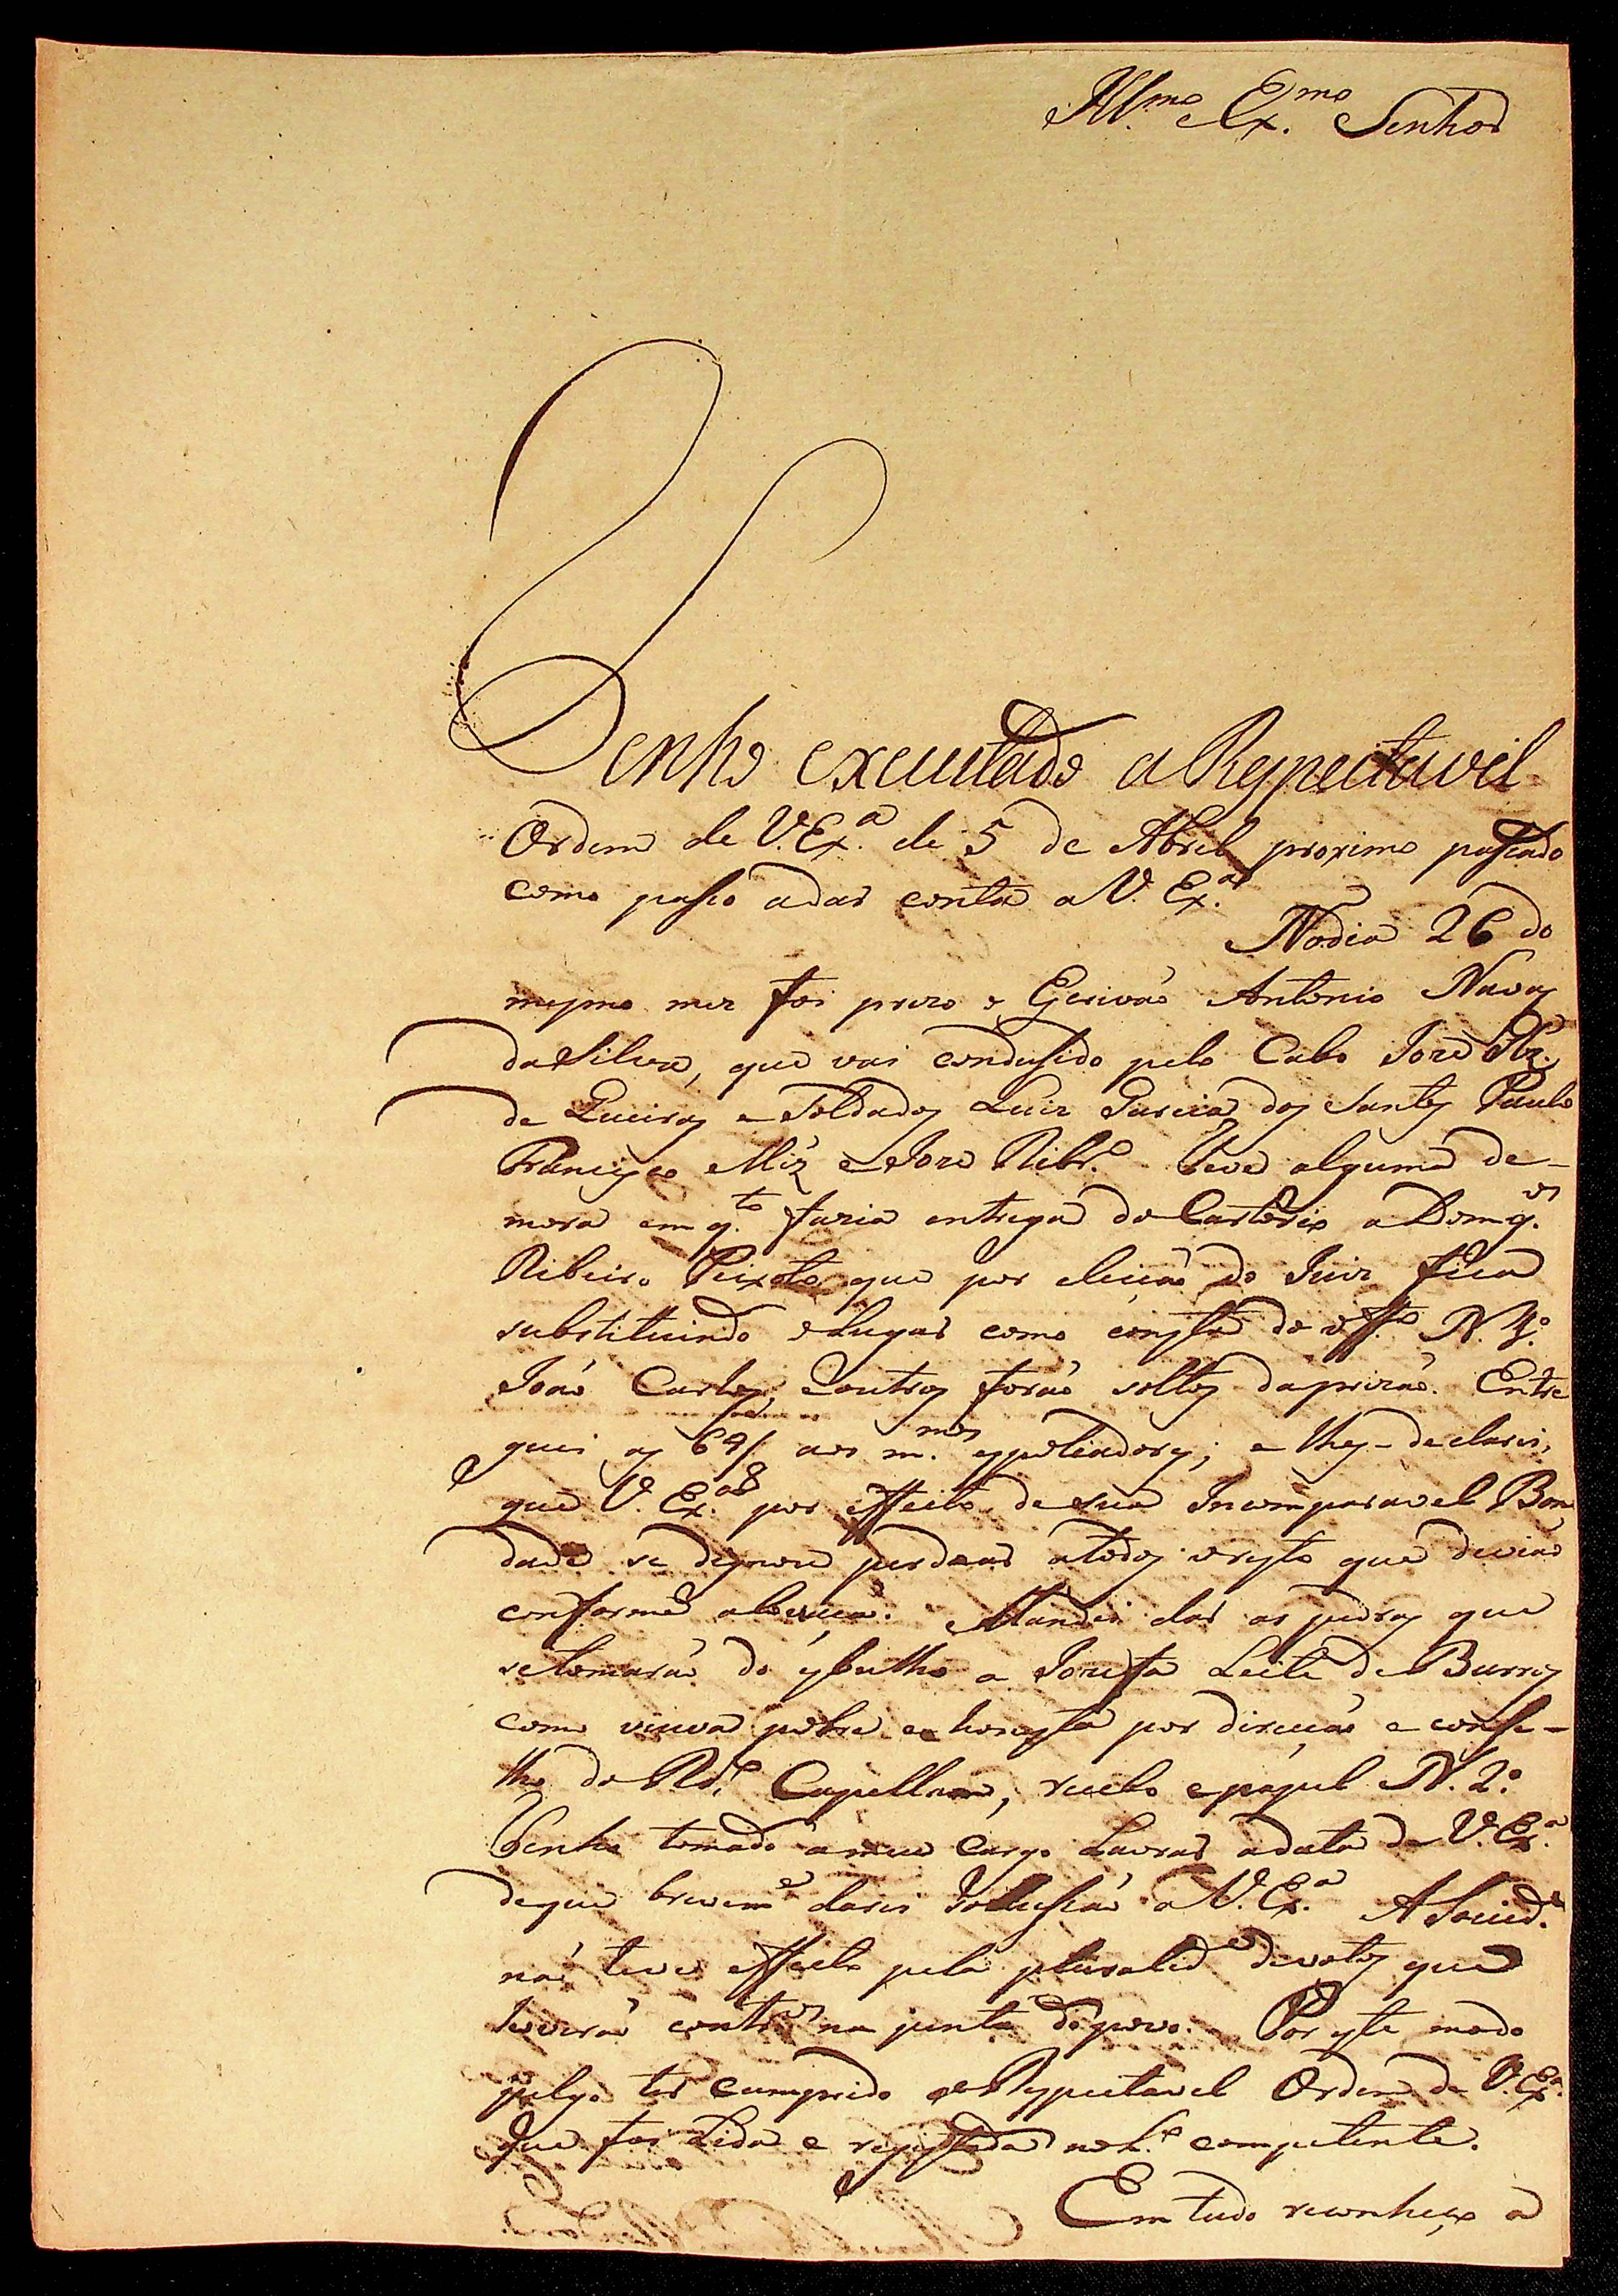 Ill.mo Ex.mo Senhor
Tenho executado a Respeitavel
Ordem de V. Ex.a de 5 de Abril proximo passado
como passo adar conta a V. Ex.a
Nodia 26 do
mesmo mez foi prezo o Escrivaõ Antonio Navas
daSilva, que vai condusido pelo Cabo Joze
de Queiros e Soldados Luiz Garcia dos Santos Paulo
Francisco Miz e Joze Ribr.o Teve alguma de-
mora em q.to fazia entrega do Cartorio a Dom.os
Ribeiro Peixoto que por eleiçaõ do Juiz fica
substituindo oLugar como consta do N. 1.o
Joaõ Carlos, e outros foraõ soltos daprizaõ. Entre
guei as 64/8 aos m.mos espoliadores; e lhes declarei,
que V. Ex.a por effeito de sua Incomparavel Bon
dade se dignou perdoar atodos oresto que deviaõ
conforme . Mandei dar as pedras que
setomaraõ do esbulho a Jozefa Leite de Barros
como viuva pobre e honesta por direcaõ e conse-
lho do R.do Capellam, recebo epapel N. 2.o
Tenho tomado ameu cargo Lavrar adata de V. Ex.a
deque brevem.e darei Sollusçaõ a V. Ex.a A Socied.e
naõ teve effeito pela pluralid.e devotos que
houveraõ contr.os na junta dopovo. Por este modo
julgo ter cumprido a Respeitavel Ordem de V. Ex.a
Que foi Lida e registada noL.o competente.
Em tudo reconheço a